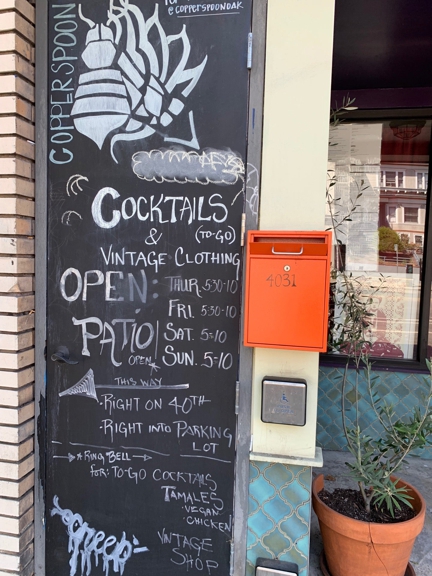 @COPPERSPOONOAK
COPPERSPOON
COCKTAILS
& (TO-GO)
VINTAGE CLOTHING
OPEN: THUR. 5:30-10
FRI. 5:30-10
PATIO SAT. 5-10
OPEN SUN. 5-10
THIS WAY
-RIGHT ON 40TH
-RIGHT INTO PARKING
LOT
RING BELL
FOR: TO-GO COCKTAILS
TAMALES
-VEGAN
-CHICKEN
VINTAGE
SHOP
4031